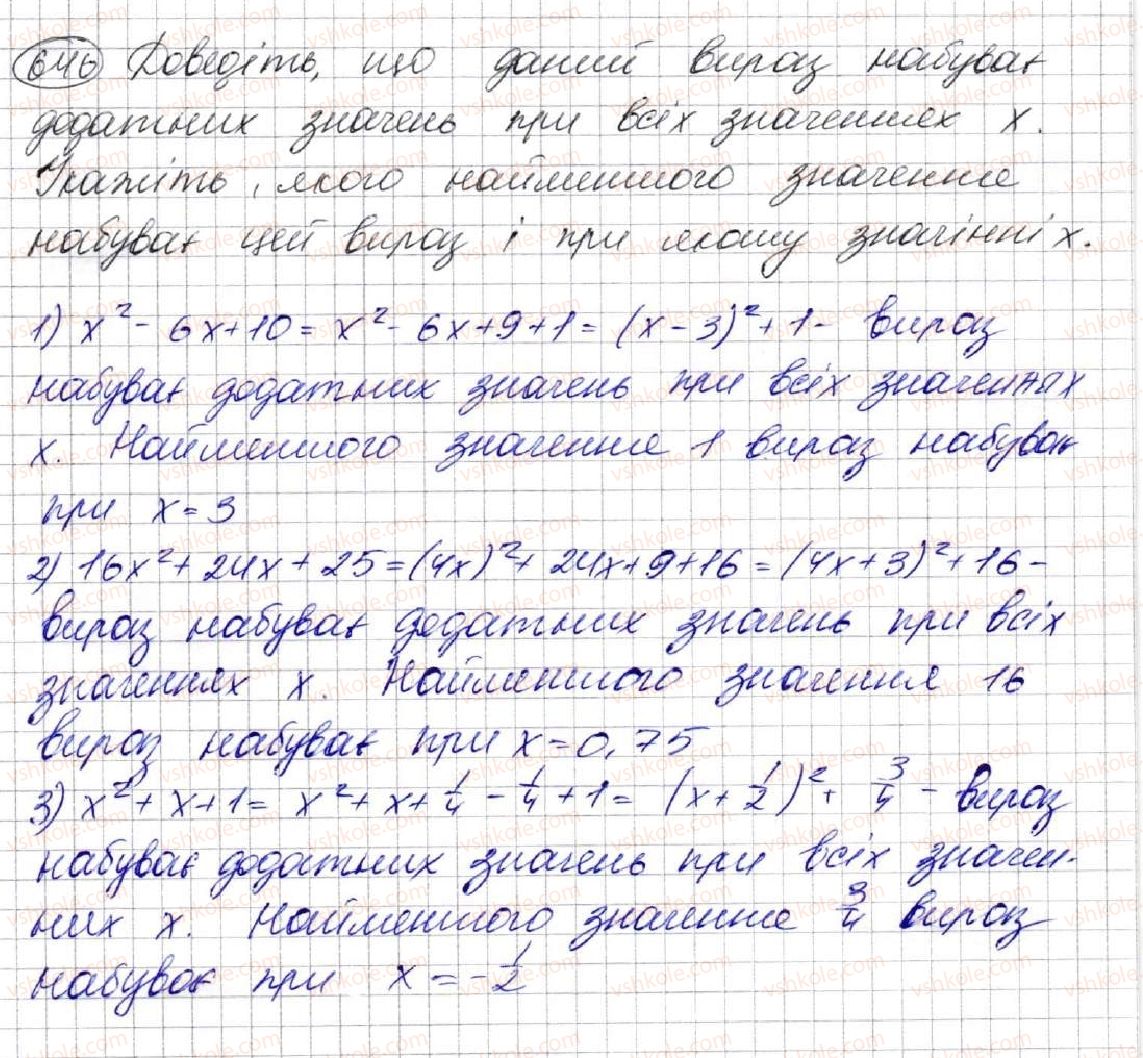 646 Доведіть, що даний вираз набуває
додатних значень при всіх значеннях x.
Укажіть, якого найменшого значення
набуває цей вираз і при якому значінні x.
1) x² - 6x + 10 = x² - 6x + 9 + 1 = (x - 3)² + 1 - вираз
набуває додатних значень при всіх значеннях
x. Найменшого значення 1 вираз набуває
при x = 3
2) 16x² + 24x + 25 = (4x)² + 24x + 9 + 16 = (4x + 3)² + 16 -
вираз набуває додатних значень при всіх
значеннях x. Найменшого значення 16
вираз набуває при x = 0,75
3) x² + x + 1 = x² + x + 1/4 - 1/4 + 1 = (x + 1/2)² + 3/4 - вираз
набуває додатних значень при всіх значен-
них x. Найменшого значення 3/4 вираз
набуває при x = - 1/2